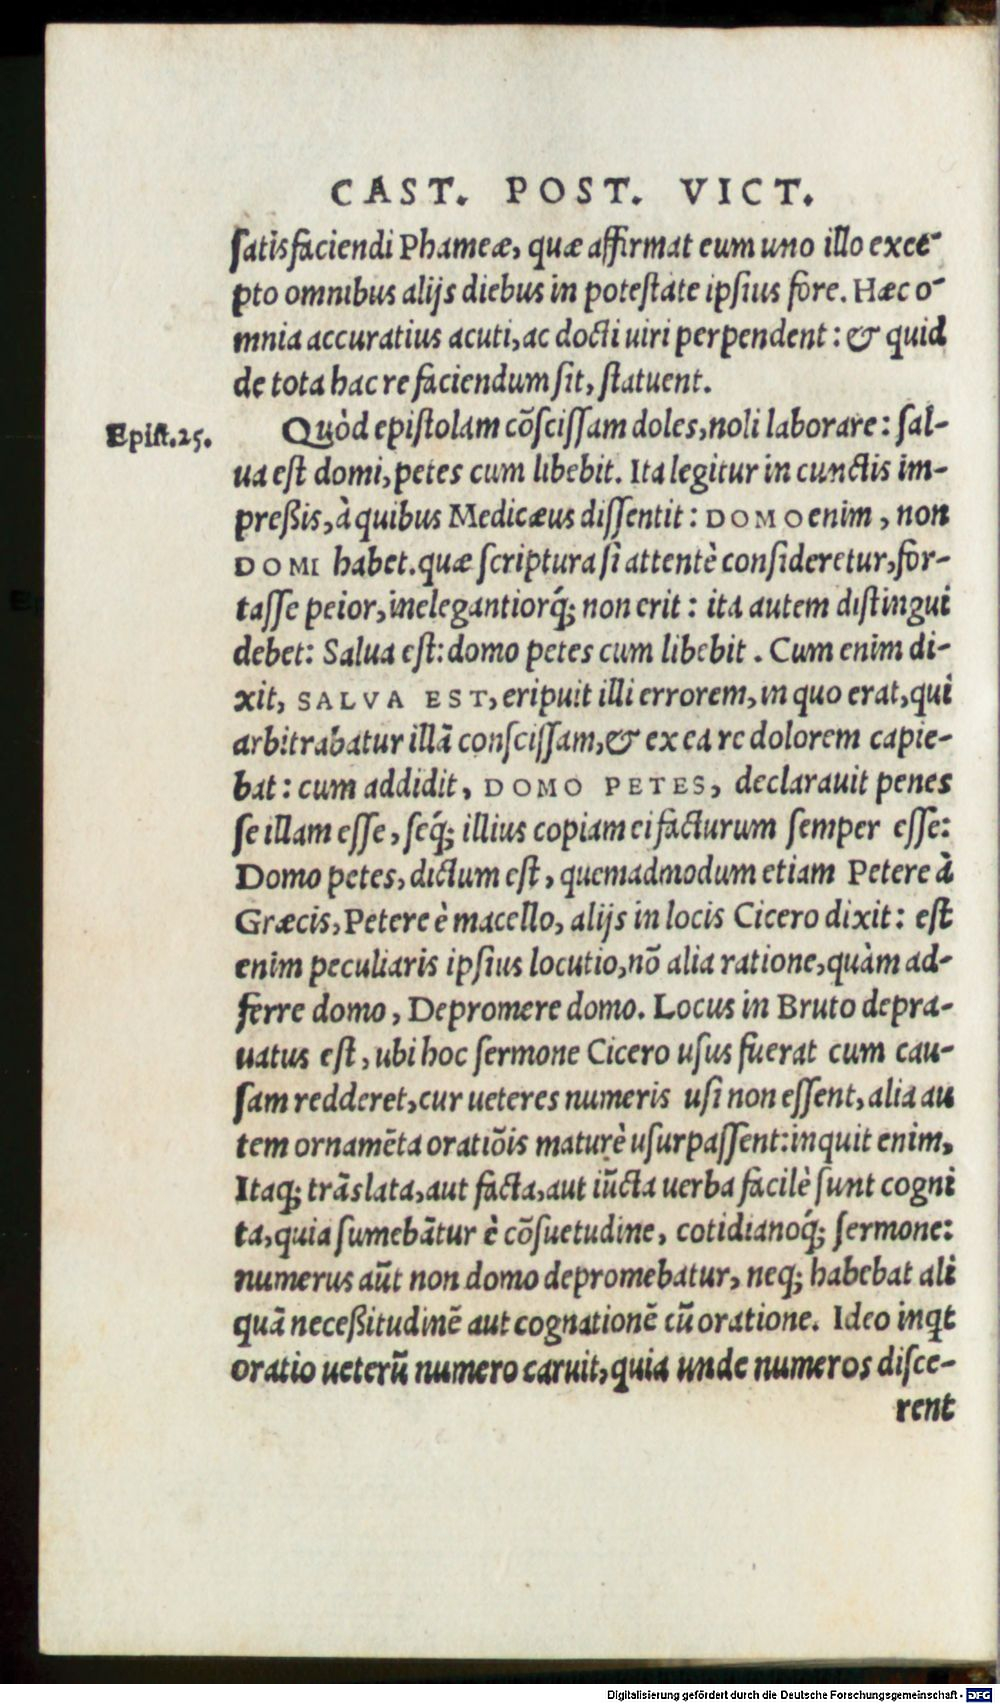 CAST. POST. VICT.
ſatisfaciendi Phameæ, quæ affirmat eum uno illo exce-
pto omnibus alijs diebus in poteſtate ipſius fore. Hæc o-
mnia accuratius acuti, ac docti uiri perpendent: & quid
de tota hac re faciendum ſit, ſtatuent.
Epiſt.25.
Quòd epiſtolam cõſciſſam doles, noli laborare: ſal-
ua eſt domi, petes cum libebit. Ita legitur in cunctis im-
preßis, à quibus Medicæus diſſentit: DOMO enim, non
DOMI habet. quæ ſcriptura ſi attentè conſideretur, for-
taſſe peior, inelegantiorq́; non erit: ita autem diſtingui
debet: Salua eſt: domo petes cum libebit. Cum enim di-
xit, SALVA EST, eripuit illi errorem, in quo erat, qui
arbitrabatur illã conſciſſam, & ex ea re dolorem capie-
bat: cum addidit, DOMO PETES, declarauit penes
ſe illam eſſe, ſeq́; illius copiam ei facturum ſemper eſſe:
Domo petes, dictum eſt, quemadmodum etiam Petere à
Græcis, Petere è macello, alijs in locis Cicero dixit: eſt
enim peculiaris ipſius locutio, nõ alia ratione, quàm ad-
ferre domo, Depromere domo. Locus in Bruto depra-
uatus eſt, ubi hoc ſermone Cicero uſus fuerat cum cau-
ſam redderet, cur ueteres numeris uſi non eſſent, alia au
tem ornamẽta oratiõis maturè uſurpaſſent: inquit enim,
Itaq; trãslata, aut facta, aut iũcta uerba facilè ſunt cogni
ta, quia ſumebãtur è cõſuetudine, cotidianoq́; ſermone:
numerus aũt non domo depromebatur, neq; habebat ali
quã neceßitudinẽ aut cognationẽ cũ oratione. Ideo inqt
oratio ueterũ numero caruit, quia unde numeros diſce-
rent
Digitalisierung gefördert durch die Deutsche Forschungsgemeinschaft - DFG